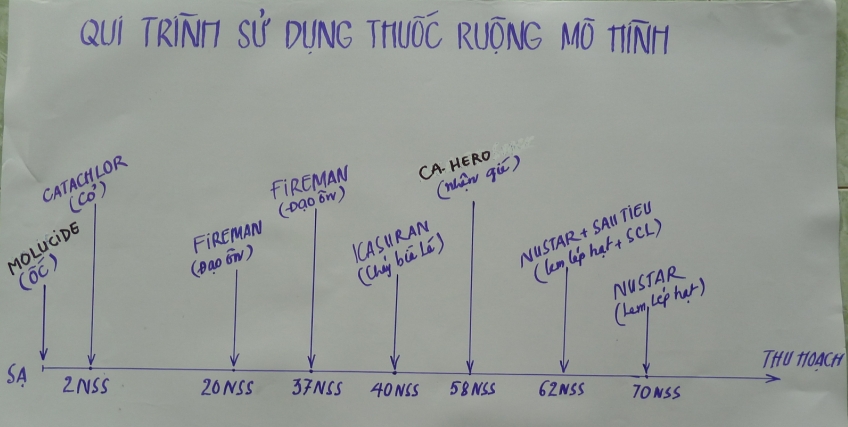 QUI TRÌNH SỬ DỤNG THUỐC RUỘNG MÔ HÌNH
MOLUCIDE
(ỐC)
CATACHLOR
(CỎ)
FIREMAN
(Đạo ôn)
FIREMAN
(Đạo ôn)
ICASURAN
(Cháy bìa lá)
CA. HERO
(nhện gié)
NUSTAR + SAU TIEU
(lem lép hạt + SCL)
NUSTAR
(Lem, lép hạt)
SẠ
2NSS
20NSS
37NSS
40NSS
58NSS
62NSS
70NSS
THU HOẠCH